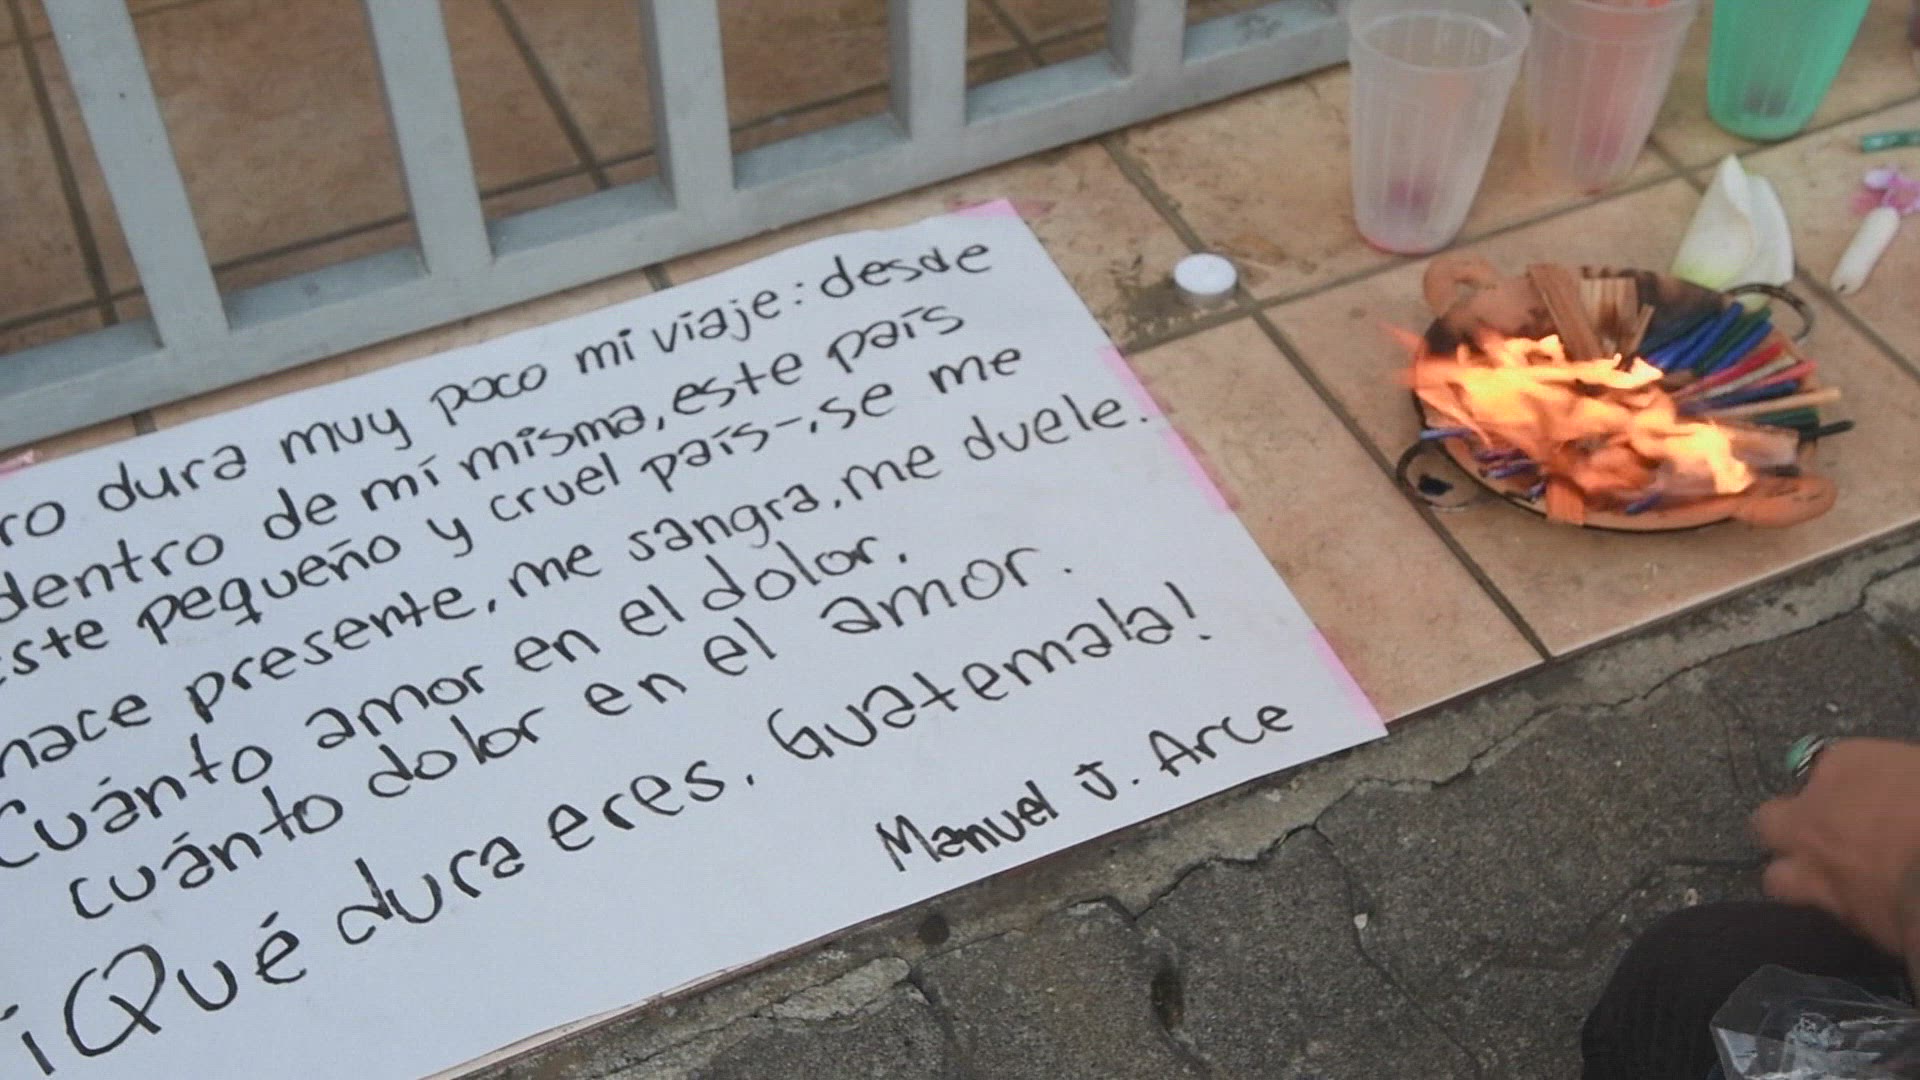 ro dura muy poco mi viaje: desde
dentro de mí misma, este país
este pequeño y cruel país-, se me
hace presente, me sangra, me duele.
Cuánto amor en el dolor,
cuánto dolor en el amor.
¡Qué dura eres, Guatemala!
Manuel J. Arce